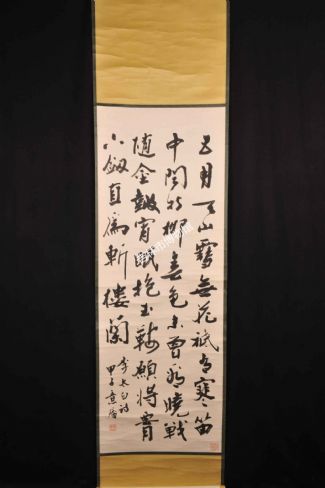 五月天山雪無花祇有寒笛
中聞折柳春色未曾看曉戰
隨金鼓宵眠抱玉鞍願將腰
下劍直爲斬樓蘭
李太白詩
甲子